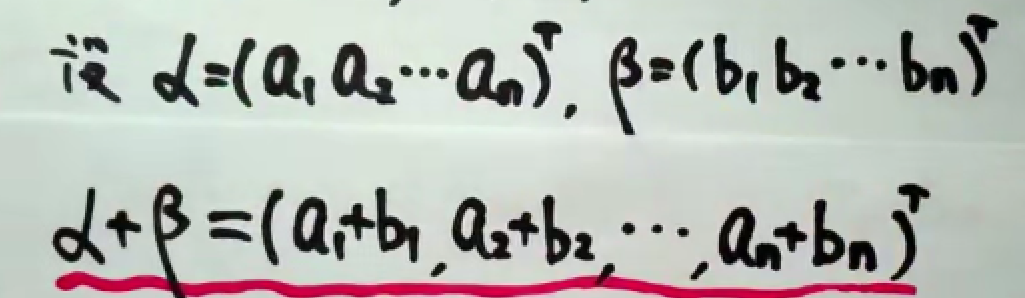 设 α=(a₁ a₂ ⋯ aₙ)ᵀ, β=(b₁ b₂ ⋯ bₙ)ᵀ
α+β=(a₁+b₁, a₂+b₂, ⋯, aₙ+bₙ)ᵀ